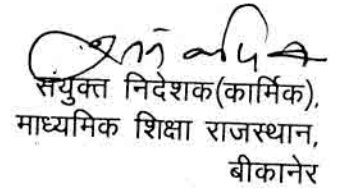 संयुक्त निदेशक(कार्मिक),
माध्यमिक शिक्षा राजस्थान,
बीकानेर